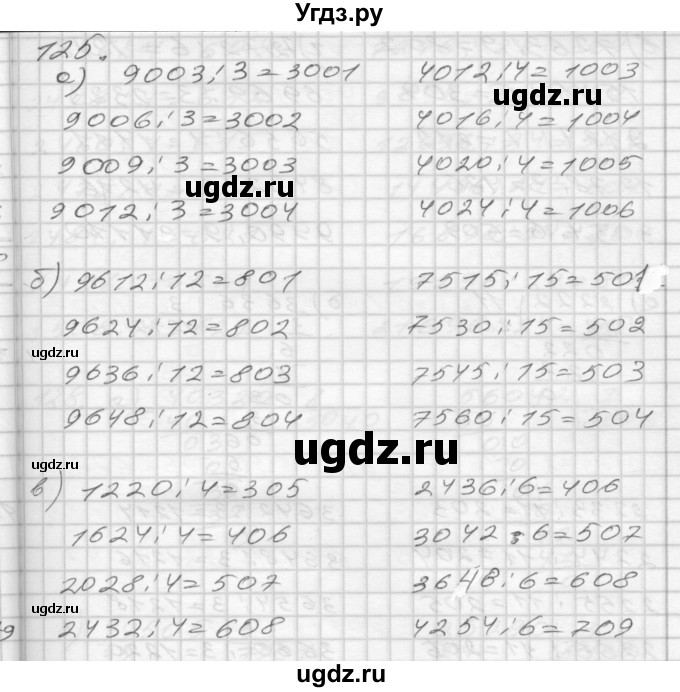 Угдз.ру
125.
а) 9003:3=3001 4012:4=1003
ugdz.ru
9006:3=3002 4016:4=1004
9009:3=3003 4020:4=1005
ugdz.ru
9012:3=3004 4024:4=1006
б) 9612:12=801 7515:15=501
9624:12=802 7530:15=502
ugdz.ru
9636:12=803 7545:15=503
9648:12=804 7560:15=504
ugdz.ru
в) 1220:4=305 2436:6=406
1624:4=406 3042:6=507
2028:4=507 3648:6=608
ugdz.ru
2432:4=608 4254:6=709
ugdz.ru